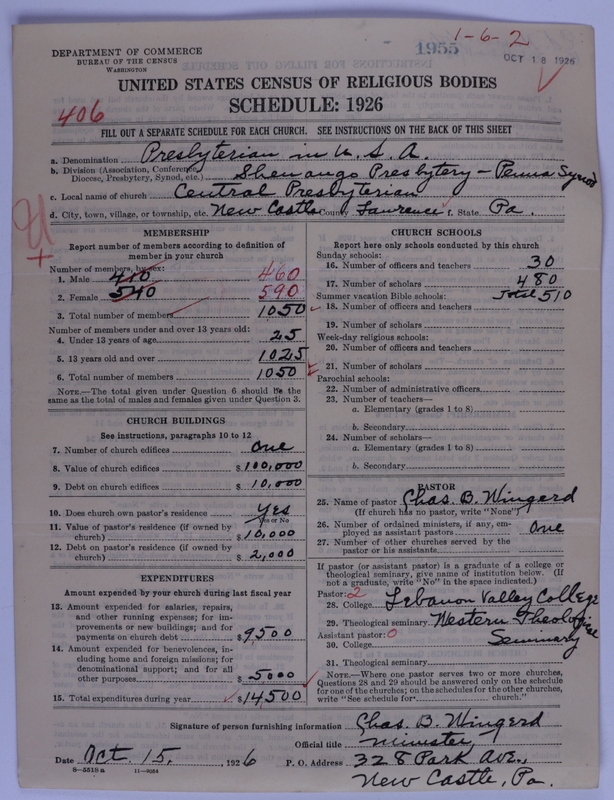 1-6-2
1955
OCT 18 1926
DEPARTMENT OF COMMERCE
BUREAU OF THE CENSUS
WASHINGTON
UNITED STATES CENSUS OF RELIGIOUS BODIES
SCHEDULE: 1926
406
FILL OUT A SEPARATE SCHEDULE FOR EACH CHURCH. SEE INSTRUCTIONS ON THE BACK OF THIS SHEET
a. Denomination Presbyterian in U.S.A.
b. Division (Association, Conference, Diocese, Presbytery, Synod, etc.) Shenango Presbytery - Penna Synod
c. Local name of church Central Presbyterian
d. City, town, village, or township, etc. New Castle County Lawrence f. State Pa.
MEMBERSHIP
Report number of members according to definition of
member in your church
Number of members, by sex:
1. Male 410 460
2. Female 540 590
3. Total number of members 1050
Number of members under and over 13 years old:
4. Under 13 years of age 25
5. 13 years old and over 1025
6. Total number of members 1050
NOTE.—The total given under Question 6 should be the
same as the total of males and females given under Question 3.
CHURCH BUILDINGS
See instructions, paragraphs 10 to 12
7. Number of church edifices One
8. Value of church edifices $100,000
9. Debt on church edifices $10,000
10. Does church own pastor's residence Yes
Yes or No
11. Value of pastor's residence (if owned by
church) $10,000
12. Debt on pastor's residence (if owned by
church) $2,000
EXPENDITURES
Amount expended by your church during last fiscal year
13. Amount expended for salaries, repairs,
and other running expenses; for im-
provements or new buildings; and for
payments on church debt $9,500
14. Amount expended for benevolences, in-
cluding home and foreign missions; for
denominational support; and for all
other purposes $5000
15. Total expenditures during year $14,500
CHURCH SCHOOLS
Report here only schools conducted by this church
Sunday schools:
16. Number of officers and teachers 30
17. Number of scholars 480
Summer vacation Bible schools: Total 510
18. Number of officers and teachers
19. Number of scholars
Week-day religious schools:
20. Number of officers and teachers
21. Number of scholars
Parochial schools:
22. Number of administrative officers
23. Number of teachers—
a. Elementary (grades 1 to 8)
b. Secondary
24. Number of scholars—
a. Elementary (grades 1 to 8)
b. Secondary
PASTOR
25. Name of pastor Chas. B. Wingerd
(If church has no pastor, write "None")
26. Number of ordained ministers, if any, em-
ployed as assistant pastors One
27. Number of other churches served by the
pastor or his assistants
If pastor (or assistant pastor) is a graduate of a college or
theological seminary, give name of institution below. (If
not a graduate, write "No" in the space indicated.)
Pastor: 2
28. College Lebanon Valley College
29. Theological seminary Western Theological
Assistant pastor: 0 Seminary
30. College
31. Theological seminary
NOTE.—Where one pastor serves two or more churches,
Questions 28 and 29 should be answered only on the schedule
for one of the churches; on the schedules for the other churches,
write "See schedule for church."
Signature of person furnishing information Chas. B. Wingerd
Official title Minister
Date Oct. 15, 1926 P. O. Address 328 Park Ave.,
8—5518 a 11—9054 New Castle, Pa.